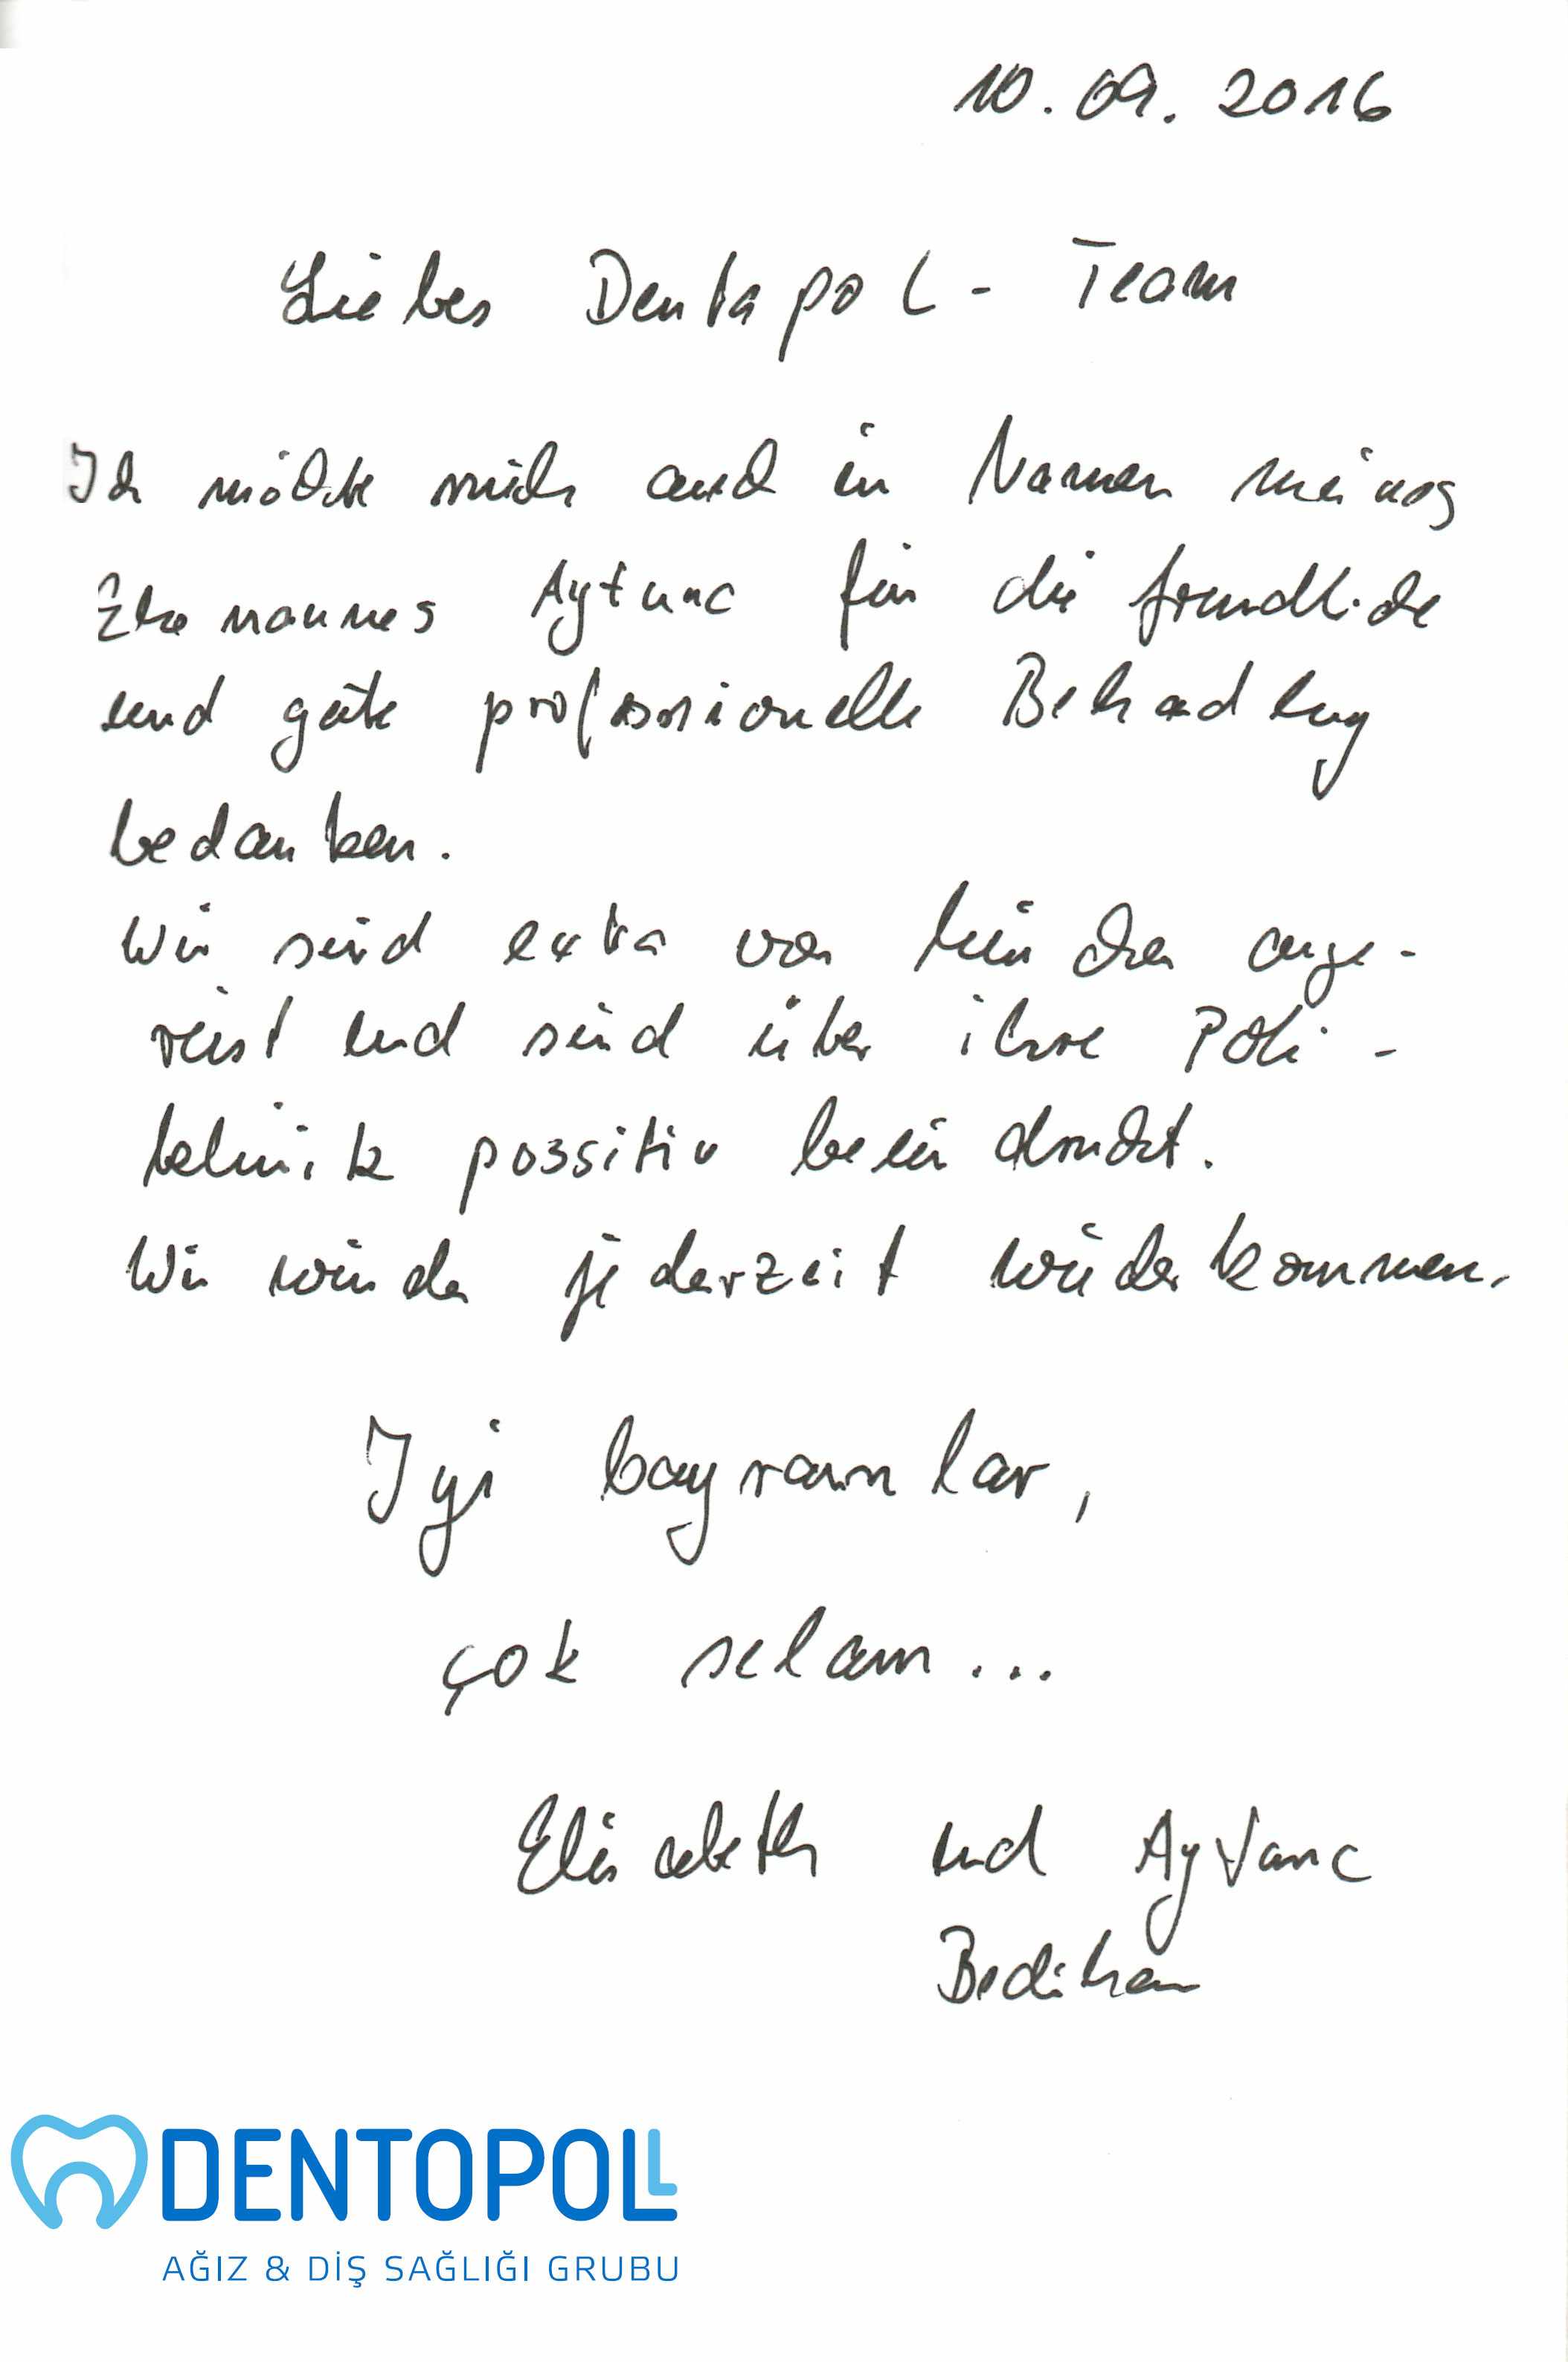 10.09.2016
Liebes Dentapol-Team
Ich möchte mich auch in Namen meines
Ehemannes Aytunc für die freundliche
und gute professionelle Behandlung
bedanken.
Wir sind extra von München ange-
reist und sind über ihre Poli-
klinik possitiv beeindruckt.
Wir würden jederzeit wiederkommen.
Iyi bayramlar,
çok selam...
Elisabeth und Aytunc
Bedihan
DENTOPOLL
AĞIZ & DİŞ SAĞLIĞI GRUBU